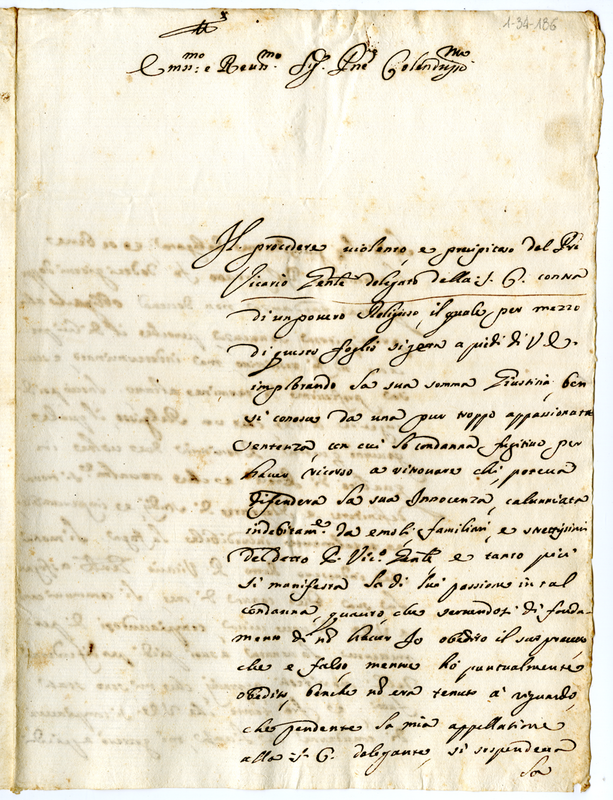 1-34-186
Em̃i:mo e Reu:mo Sig. Pñe Colendiss:mo
Il procedere uiolento, e precipitoso del Pre
Vicario Gentle delegato della S. C. contra
di un pouero Religioso, il quale per mezzo
di questo foglio si getta a piedi di V. E.
implorando la sua somma Giustitia, ben
si conosce da una pur troppo appassionata
sentenza, con cui lo condanna fugitiuo per
hauer ricorso a ritrouare chi poteua
difendere la sua Innocenza, calunniata
indebitame da emoli familiari, e strettissimi
del detto P. Vico Gentle e tanto più
si manifesta la di lui passione in tal
condanna, quanto, che seruendosi di fonda-
mento di nõ hauer Io obedito il suo precetto
che e falso, mentre hò puntualmente
obedito, benche nõ era tenuto a riguardo,
che pendente la mia appellatione
alla S. C. delegante, si sospendeua
la